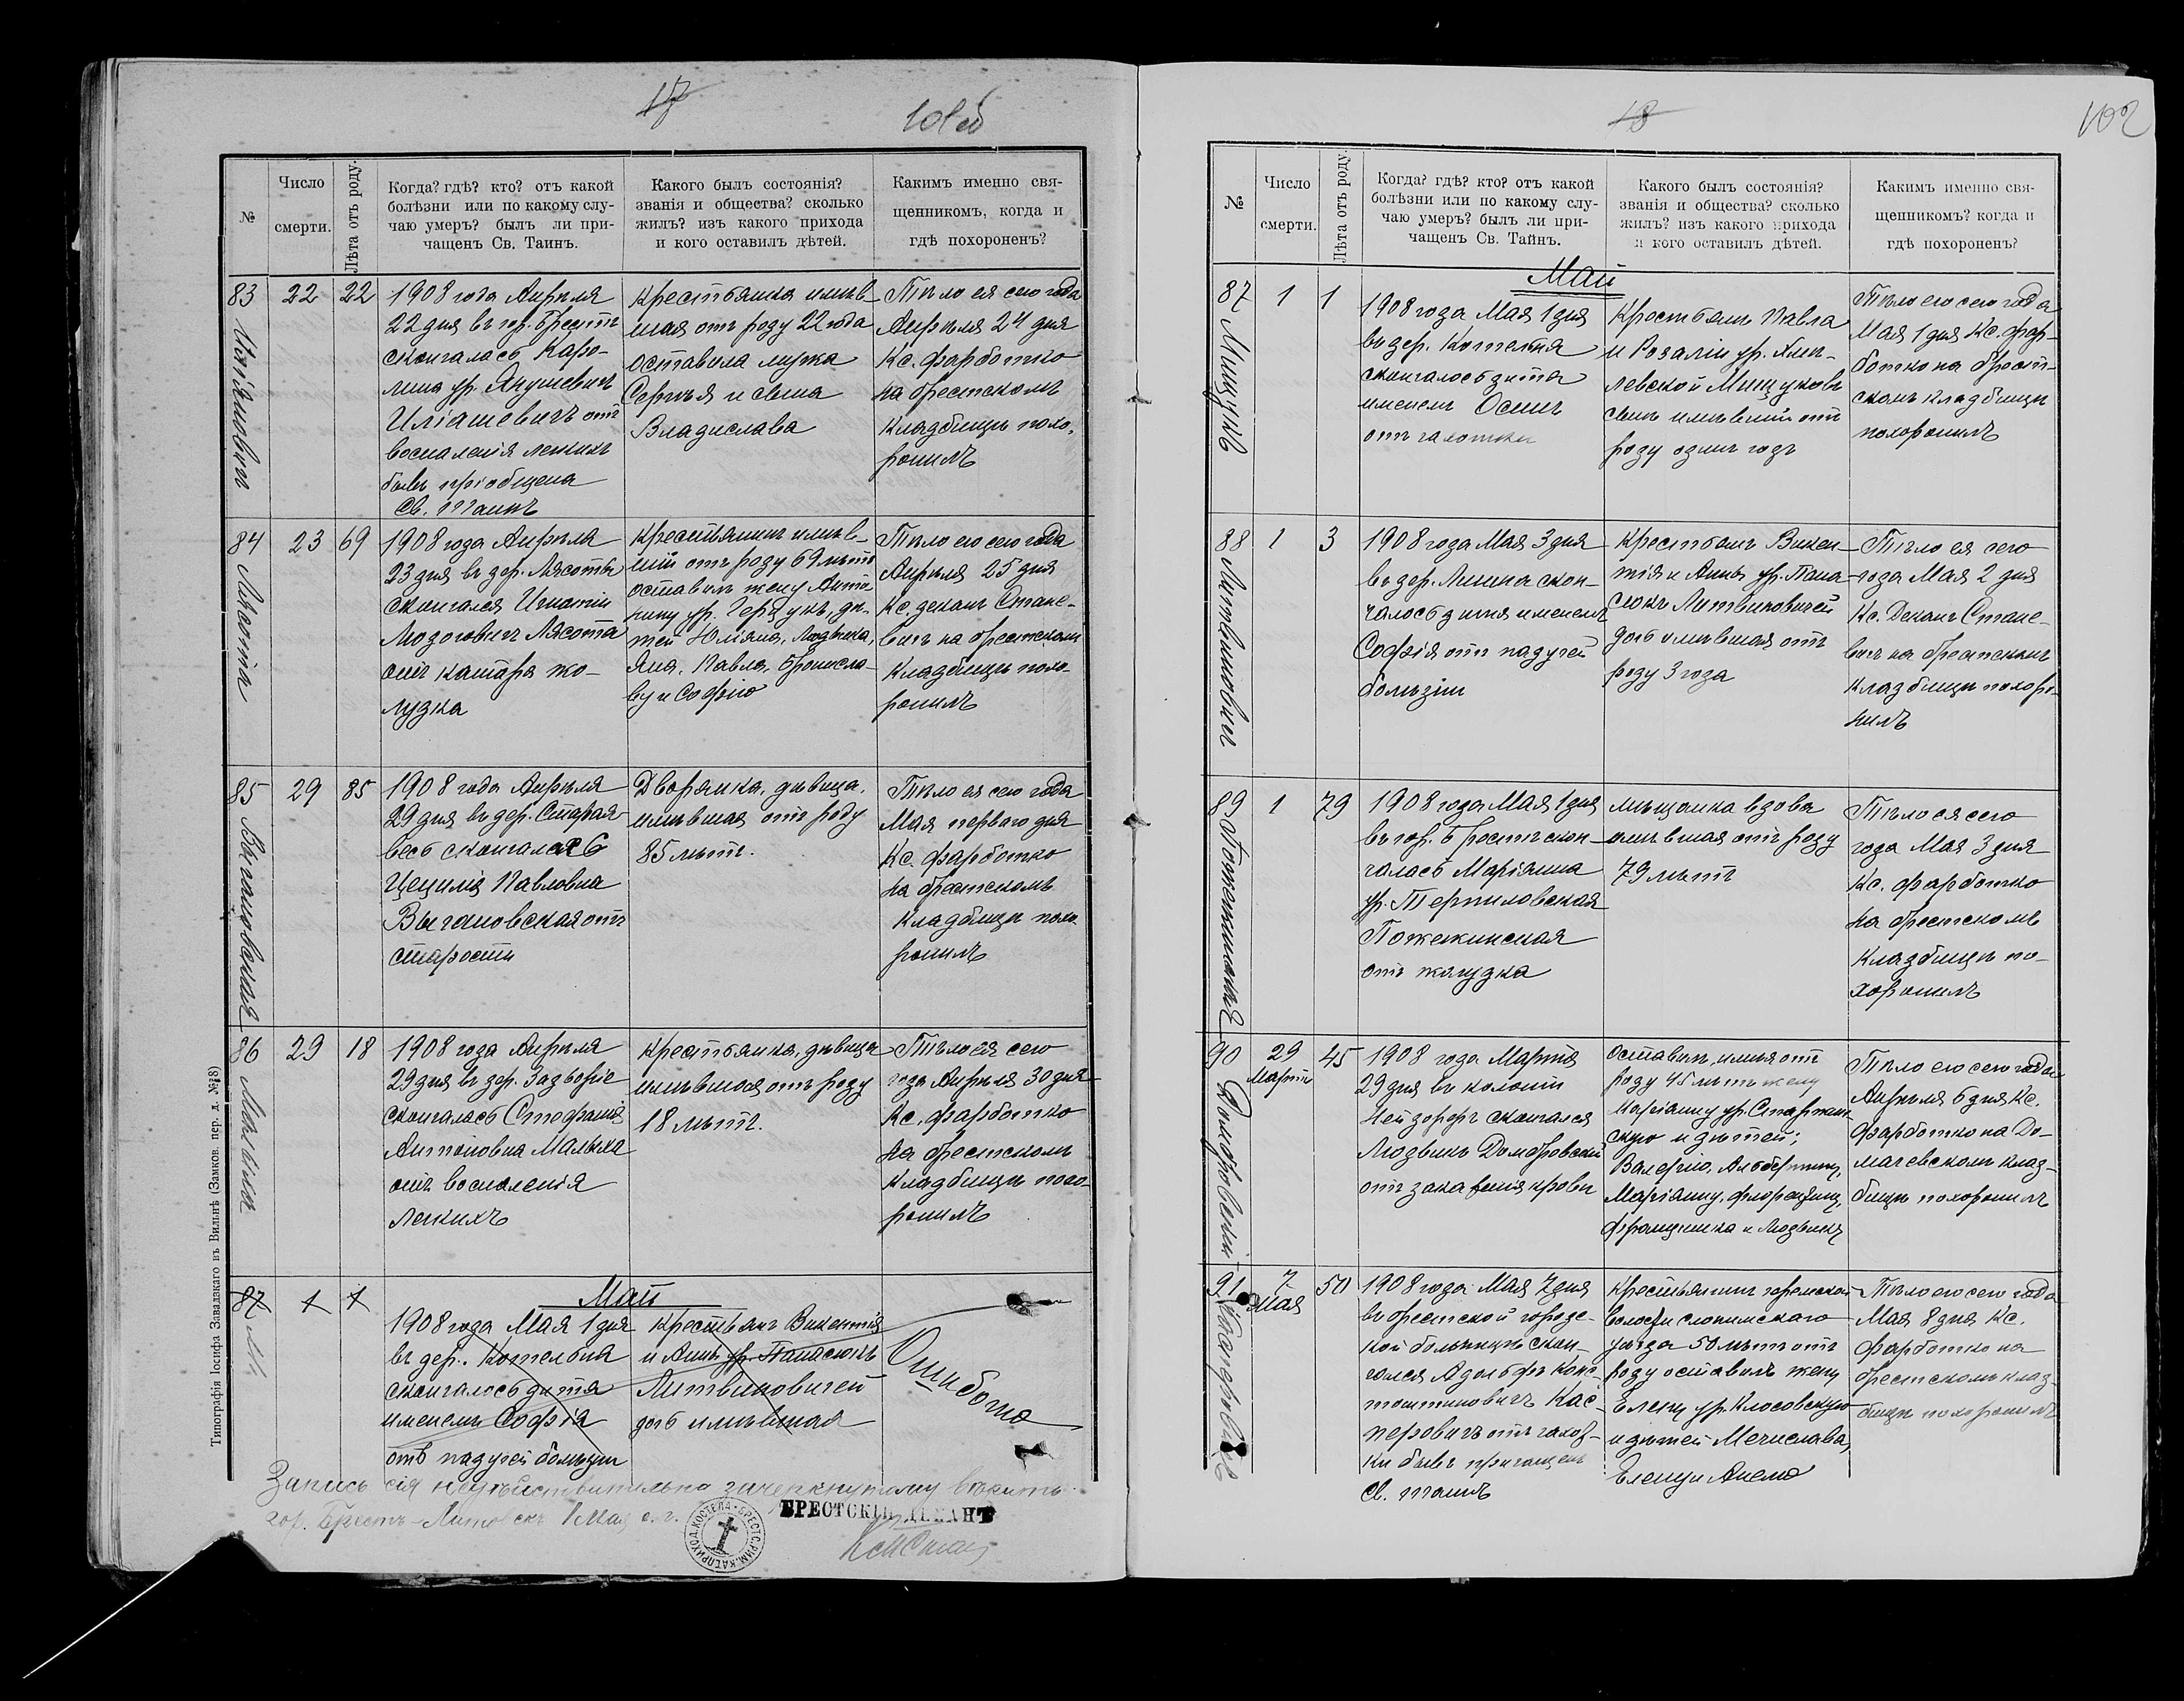 17
101об
№
Число
смерти.
Лѣта отъ роду.
Когда? гдѣ? кто? отъ какой
болѣзни или по какому слу-
чаю умеръ? былъ ли при-
чащенъ Св. Таинъ.
Какого былъ состоянія?
званія и общества? сколько
жилъ? изъ какого прихода
и кого оставилъ дѣтей.
Какимъ именно свя-
щенникомъ, когда и
гдѣ похороненъ?
83
22
22
1908 года Апрѣля
22 дня въ гор. Брестѣ
скончалась Каро-
лина ур. Янушевичъ
Иліашевичъ отъ
воспаленія легкихъ
бывъ пріобщена
Св. Таинъ
Крестьянка имѣв-
шая отъ роду 22 года
оставила мужа
Сергѣя и сына
Владислава
Тѣло ея сего года
Апрѣля 24 дня
Кс. Фарботко
на брестскомъ
кладбищѣ похо-
ронилъ
84
Лясота
23
69
1908 года Апрѣля
23 дня въ дер. Лясоты
скончался Игнатій
Лясота
отъ катара же-
лудка
Крестьянинъ имѣв-
шій отъ роду 69 лѣтъ
оставилъ жену Анто-
нину ур. дѣ-
тей Юліана, Людвика,
Яна, Павла, Бронисла-
ву и Софію
Тѣло его сего года
Апрѣля 25 дня
Кс. деканъ Стане-
вичъ на брестскомъ
кладбищѣ похо-
ронилъ
85
Выгановская
29
85
1908 года Апрѣля
29 дня въ дер. Старая
весь скончалась
Цецилія Павловна
Выгановская отъ
старости
Дворянка, дѣвица,
имѣвшая отъ роду
85 лѣтъ.
Тѣло ея сего года
Мая перваго дня
Кс. Фарботко
на брестскомъ
кладбищѣ похо-
ронилъ
86
29
18
1908 года Апрѣля
29 дня въ дер. Задворіе
скончалась Стефанія
Антоновна Малыха
отъ воспаленія
легкихъ
Крестьянка, дѣвица
имѣвшая отъ роду
18 лѣтъ.
Тѣло ея сего
года Апрѣля 30 дня
Кс. Фарботко
на брестскомъ
кладбищѣ похо-
ронилъ
Май
87
1
1
1908 года Мая 1 дня
въ дер. Котельня
скончалось дитя
именемъ Софія
отъ падучей болѣзни
Крестьянъ Викентія
и Анны ур. Панасюкъ
Литвиновичей
дочь имѣвшая
Ошибочно
Запись сія недѣйствительна
гор. Брестъ-Литовскъ 1 Мая с. г.
БРЕСТСКІЙ ДЕКАНЪ
Типографія Іосифа Завадзкаго въ Вильнѣ (Замков. пер. д. №8)
18
102
№
Число
смерти.
Лѣта отъ роду.
Когда? гдѣ? кто? отъ какой
болѣзни или по какому слу-
чаю умеръ? былъ ли при-
чащенъ Св. Тайнъ.
Какого былъ состоянія?
званія и общества? сколько
жилъ? изъ какого прихода
и кого оставилъ дѣтей.
Какимъ именно свя-
щенникомъ? когда и
гдѣ похороненъ?
Май
87
Мищукъ
1
1
1908 года Мая 1 дня
въ дер. Котельня
скончалось дитя
именемъ Осипъ
отъ чахотки
Крестьянъ Павла
и Розаліи ур. Хме-
левской Мищуковъ
сынъ имѣвшій отъ
роду одинъ годъ
Тѣло его сего года
Мая 1 дня Кс. Фар-
ботко на брест-
скомъ кладбищѣ
похоронилъ
88
Литвиновичъ
1
3
1908 года Мая 3 дня
въ дер. скон-
чалось дитя именемъ
Софія отъ падучей
болѣзни
Крестьянъ Викен-
тія и Анны ур. Пана-
сюкъ Литвиновичей
дочь имѣвшая отъ
роду 3 года
Тѣло ея сего
года Мая 2 дня
Кс. Деканъ Стане-
вичъ на брестскомъ
кладбищѣ похоро-
нилъ
89
Пожежинская
1
79
1908 года Мая 1 дня
въ гор. Брестѣ скон-
чалась Маріанна
ур. Терпиловская
Пожежинская
отъ желудка
мѣщанка вдова
имѣвшая отъ роду
79 лѣтъ
Тѣло ея сего
года Мая 3 дня
Кс. Фарботко
на брестскомъ
кладбищѣ по-
хоронилъ
90
Домбровскій
29
Марта
45
1908 года Марта
29 дня въ колоніи
Нейдорфъ скончался
Людвикъ Домбровскій
отъ зараженія крови
Оставилъ, имѣя отъ
роду 45 лѣтъ жену
Маріанну ур.
скую и дѣтей:
Валерію, Альбертину,
Маріанну, Флорентину,
Францишка и Людвику
Тѣло его сего года
Апрѣля 6 дня Кс.
Фарботко на До-
мачевскомъ клад-
бищѣ похоронилъ
91
Касперовичъ
7
Мая
50
1908 года Мая 7 дня
въ брестской город-
ской больницѣ скон-
чался Адольфъ Конс-
тантиновичъ Кас-
перовичъ отъ чахот-
ки бывъ причащенъ
Св. таинъ
Крестьянинъ
волости слонимскаго
уѣзда 50 лѣтъ отъ
роду оставилъ жену
Елену ур. Клосовскую
и дѣтей Мечислава,
Елену и
Тѣло его сего года
Мая 8 дня Кс.
Фарботко на
брестскомъ клад-
бищѣ похоронилъ